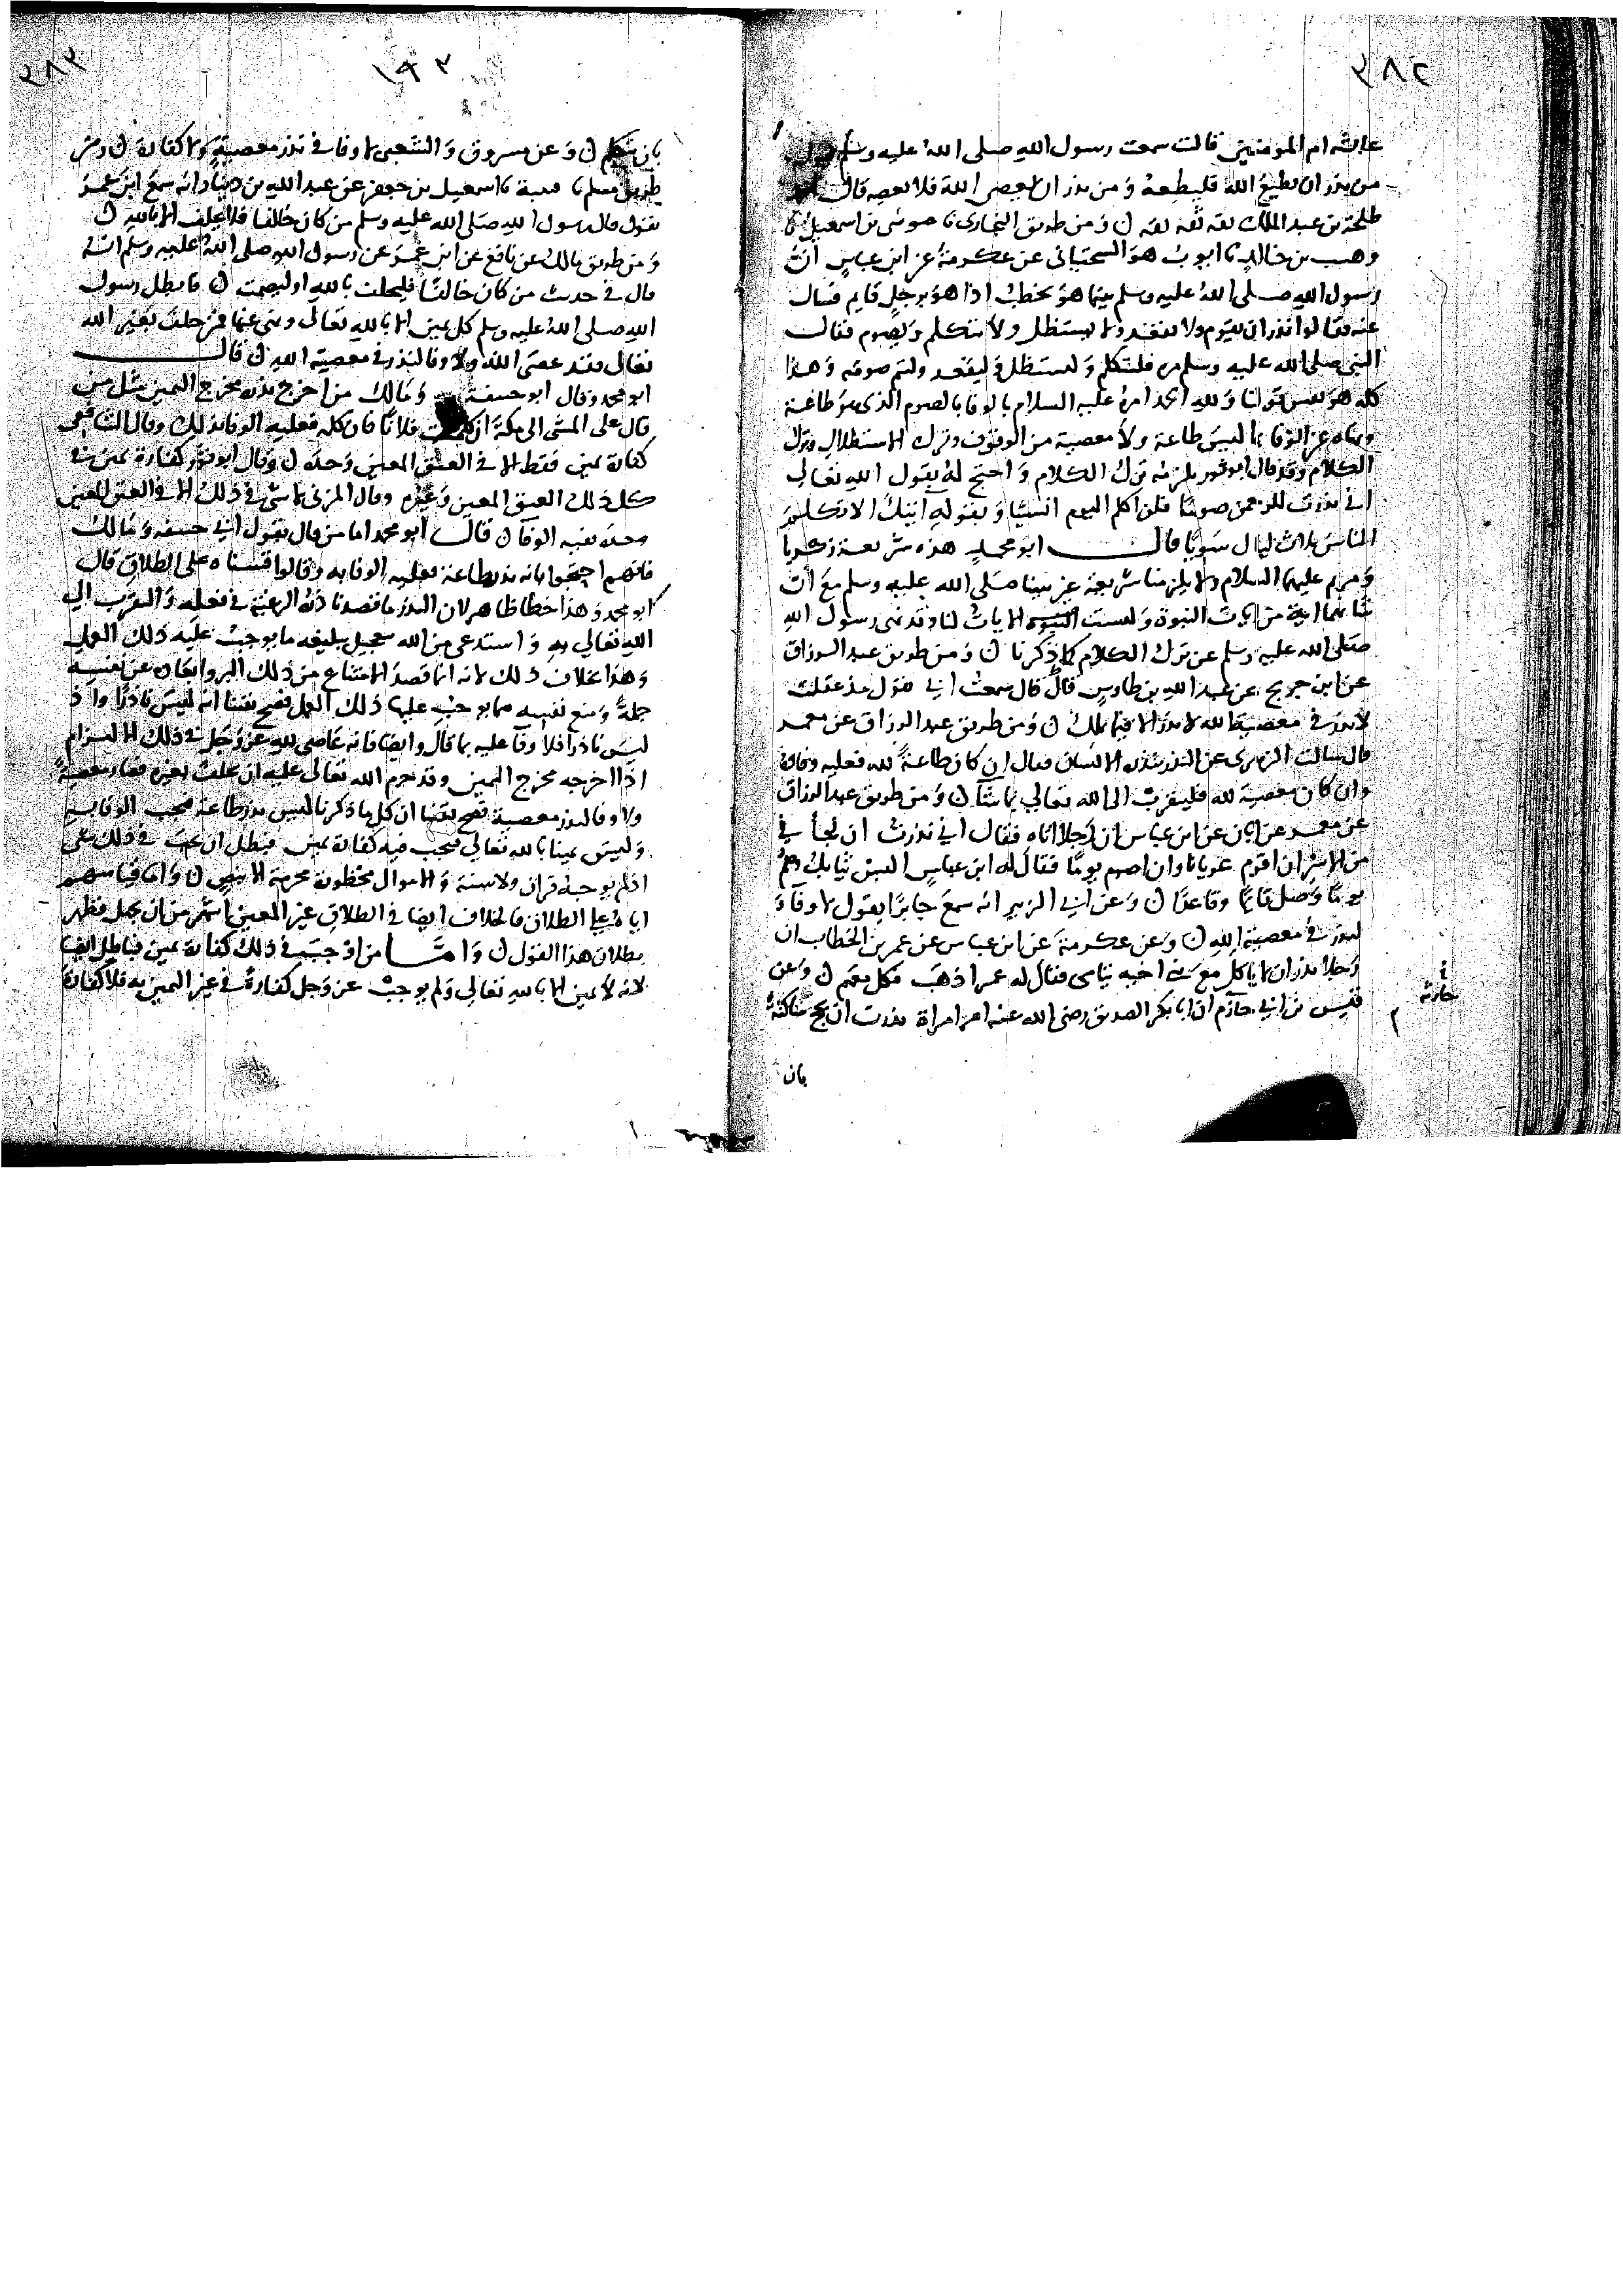 ٢٨٢
عايشة ام المومنين قالت سمعت رسول الله صلى الله عليه وسلم يقول
من نذر ان يطيع الله فليطعه وَمن نذر ان يعصى الله فلا يعصه قال
طلحة بن عبد الملك ثقة ثقة ثقة ن وَمن طريق البخارى نا موسى بن اسمعيل نا
وهيب بن خالد نا ايوب هو السختيانى عن عكرمة عن ابن عباس ان
رسول الله صلى الله عليه وسلم بينما هو يخطب اذا هو برجل قايم فسال
عنه فقالوا نذر ان يقوم ولا يقعد ولا يستظل ولا يتكلم ويصوم فقال
النبى صلى الله عليه وسلم مره فليتكلم وليستظل وليقعد وليتم صومه وهذا
كله هو نفس قولنا ولله الحمد امره عليه السلام بالوفا بالصوم الذى هو طاعة
ونهاه عن الوفا بما ليس طاعة ولا معصية من الوقوف وترك الاستظلال وترك
الكلام وقد قال ابو ثور يلزمه ترك الكلام واحتج له بقول الله تعالى
انى نذرت للرحمن صوما فلن اكلم اليوم انسيا وبقوله ايتك الا تكلم
الناس ثلاث ليال سويا قال ابو محمد هذه شريعة زكريا
ومريم عليهما السلام ولا يلزمنا شريعة غير نبينا صلى الله عليه وسلم مع ان
شانهما اية من ايات النبوة وليست الايات لنا وقد نهى رسول الله
صلى الله عليه وسلم عن ترك الكلام كما ذكرنا ن ومن طريق عبد الرزاق
عن ابن جريج عن عبد الله بن طاوس قال قال سمعت ابى يقول مذ عقلت
لا نذر فى معصية الله لا نذر الا فيما تملك ن ومن طريق عبد الرزاق عن معمر
قال سالت الزهرى عن النذر ينذره الانسان فقال ان كان طاعة لله فعليه وفاؤه
وان كان معصية لله فليتقرب الى الله تعالى بما شا ن ومن طريق عبد الرزاق
عن معمر عن ابان عن ابن عباس ان رجلا اتاه فقال انى نذرت ان
ان اقوم عريانا وان اصوم يوما فقال له ابن عباس البس ثيابك وصم
يوما وصل قايما وقاعدا ن وعن ابى الزبير انه سمع جابرا يقول لا وفا
لنذر فى معصية الله ن وعن عكرمة عن ابن عباس عن عمر بن الخطاب ان
رجلا نذر ان لا ياكل مع بنى اخيه يتامى فقال له عمر اذهب فكل معهم ن وعن
قيس بن ابى حازم ان ابا بكر الصديق رضى الله عنه امر امراة نذرت ان تحج ساكتة
بان
٢٨٣
١٩٣
بان تتكلم ن وعن مسروق والشعبى لا وفا فى نذر معصية ولا كفارة ن ومن
طريق مسلم نا قتيبة نا اسمعيل بن جعفر عن عبد الله بن دينار انه سمع ابن عمر
يقول قال رسول الله صلى الله عليه وسلم من كان حالفا فلا يحلف الا بالله ن
ومن طريق مالك عن نافع عن ابن عمر عن رسول الله صلى الله عليه وسلم انه
قال فى حديث من كان حالفا فليحلف بالله او ليصمت ن فابطل رسول
الله صلى الله عليه وسلم كل يمين الا بالله تعالى ونهى عنها فمن حلف بغير الله
تعالى فقد عصى الله ولا وفا لنذر فى معصية الله ن قال
ابو محمد وقال ابو حنيفة وَمالك من اخرج نذره مخرج اليمين مثل من
قال على المشى الى مكة ان كلمت فلانا فان كلمه فعليه الوفا بذلك وقال الشافعى
كفارة يمين فقط الا فى العتق المعين وحده ن وقال ابو ثور كفارة يمين فى
كل ذلك العتق المعين وغيره وقال المزنى لا شى فى ذلك الا فى العتق المعين
وحده ففيه الوفا ن قال ابو محمد اما من قال بقول ابى حنيفة ومالك
فانهم احتجوا بانه نذر طاعة فعليه الوفا به وقالوا قسناه على الطلاق قال
ابو محمد وهذا خطا ظاهر لان النذر ما قصد ناذره الرغبة فى فعله والتقرب الى
الله تعالى به واستدعى من الله تعجيل تبليغه ما يوجب عليه ذلك العمل
وهذا بخلاف ذلك لانه انما قصد الامتناع من ذلك البر وابعاده عن نفسه
جملة ومنع نفسه مما يوجب عليها ذلك العمل فصح يقينا انه ليس ناذرا واذ
ليس ناذرا فلا وفا عليه بما قال وايضا فانه عاصى لله عز وجل فى ذلك الالتزام
اذا اخرجه مخرج اليمين وقد حرم الله تعالى عليه ان يحلف بغيره فصار معصية
ولا وفا لنذر معصية فصح يقينا ان كل ما ذكرنا ليس نذر طاعة فيجب الوفا به
وليس يمينا بالله تعالى فيجب فيه كفارة يمين فبطل ان يجب فى ذلك شى
اذ لم يوجبه قران ولا سنة والاموال محظورة محرمة الا بنص ن واما قياسهم
اياه على الطلاق فالخلاف ايضا فى الطلاق غير المعين اشهر من ان يجهل فظهر
بطلان هذا القول ن وامـا من اوجب فى ذلك كفارة يمين فباطل ايضا
لانه لا يمين الا بالله تعالى ولم يوجب عز وجل كفارة فى غير اليمين به فلا كفارة